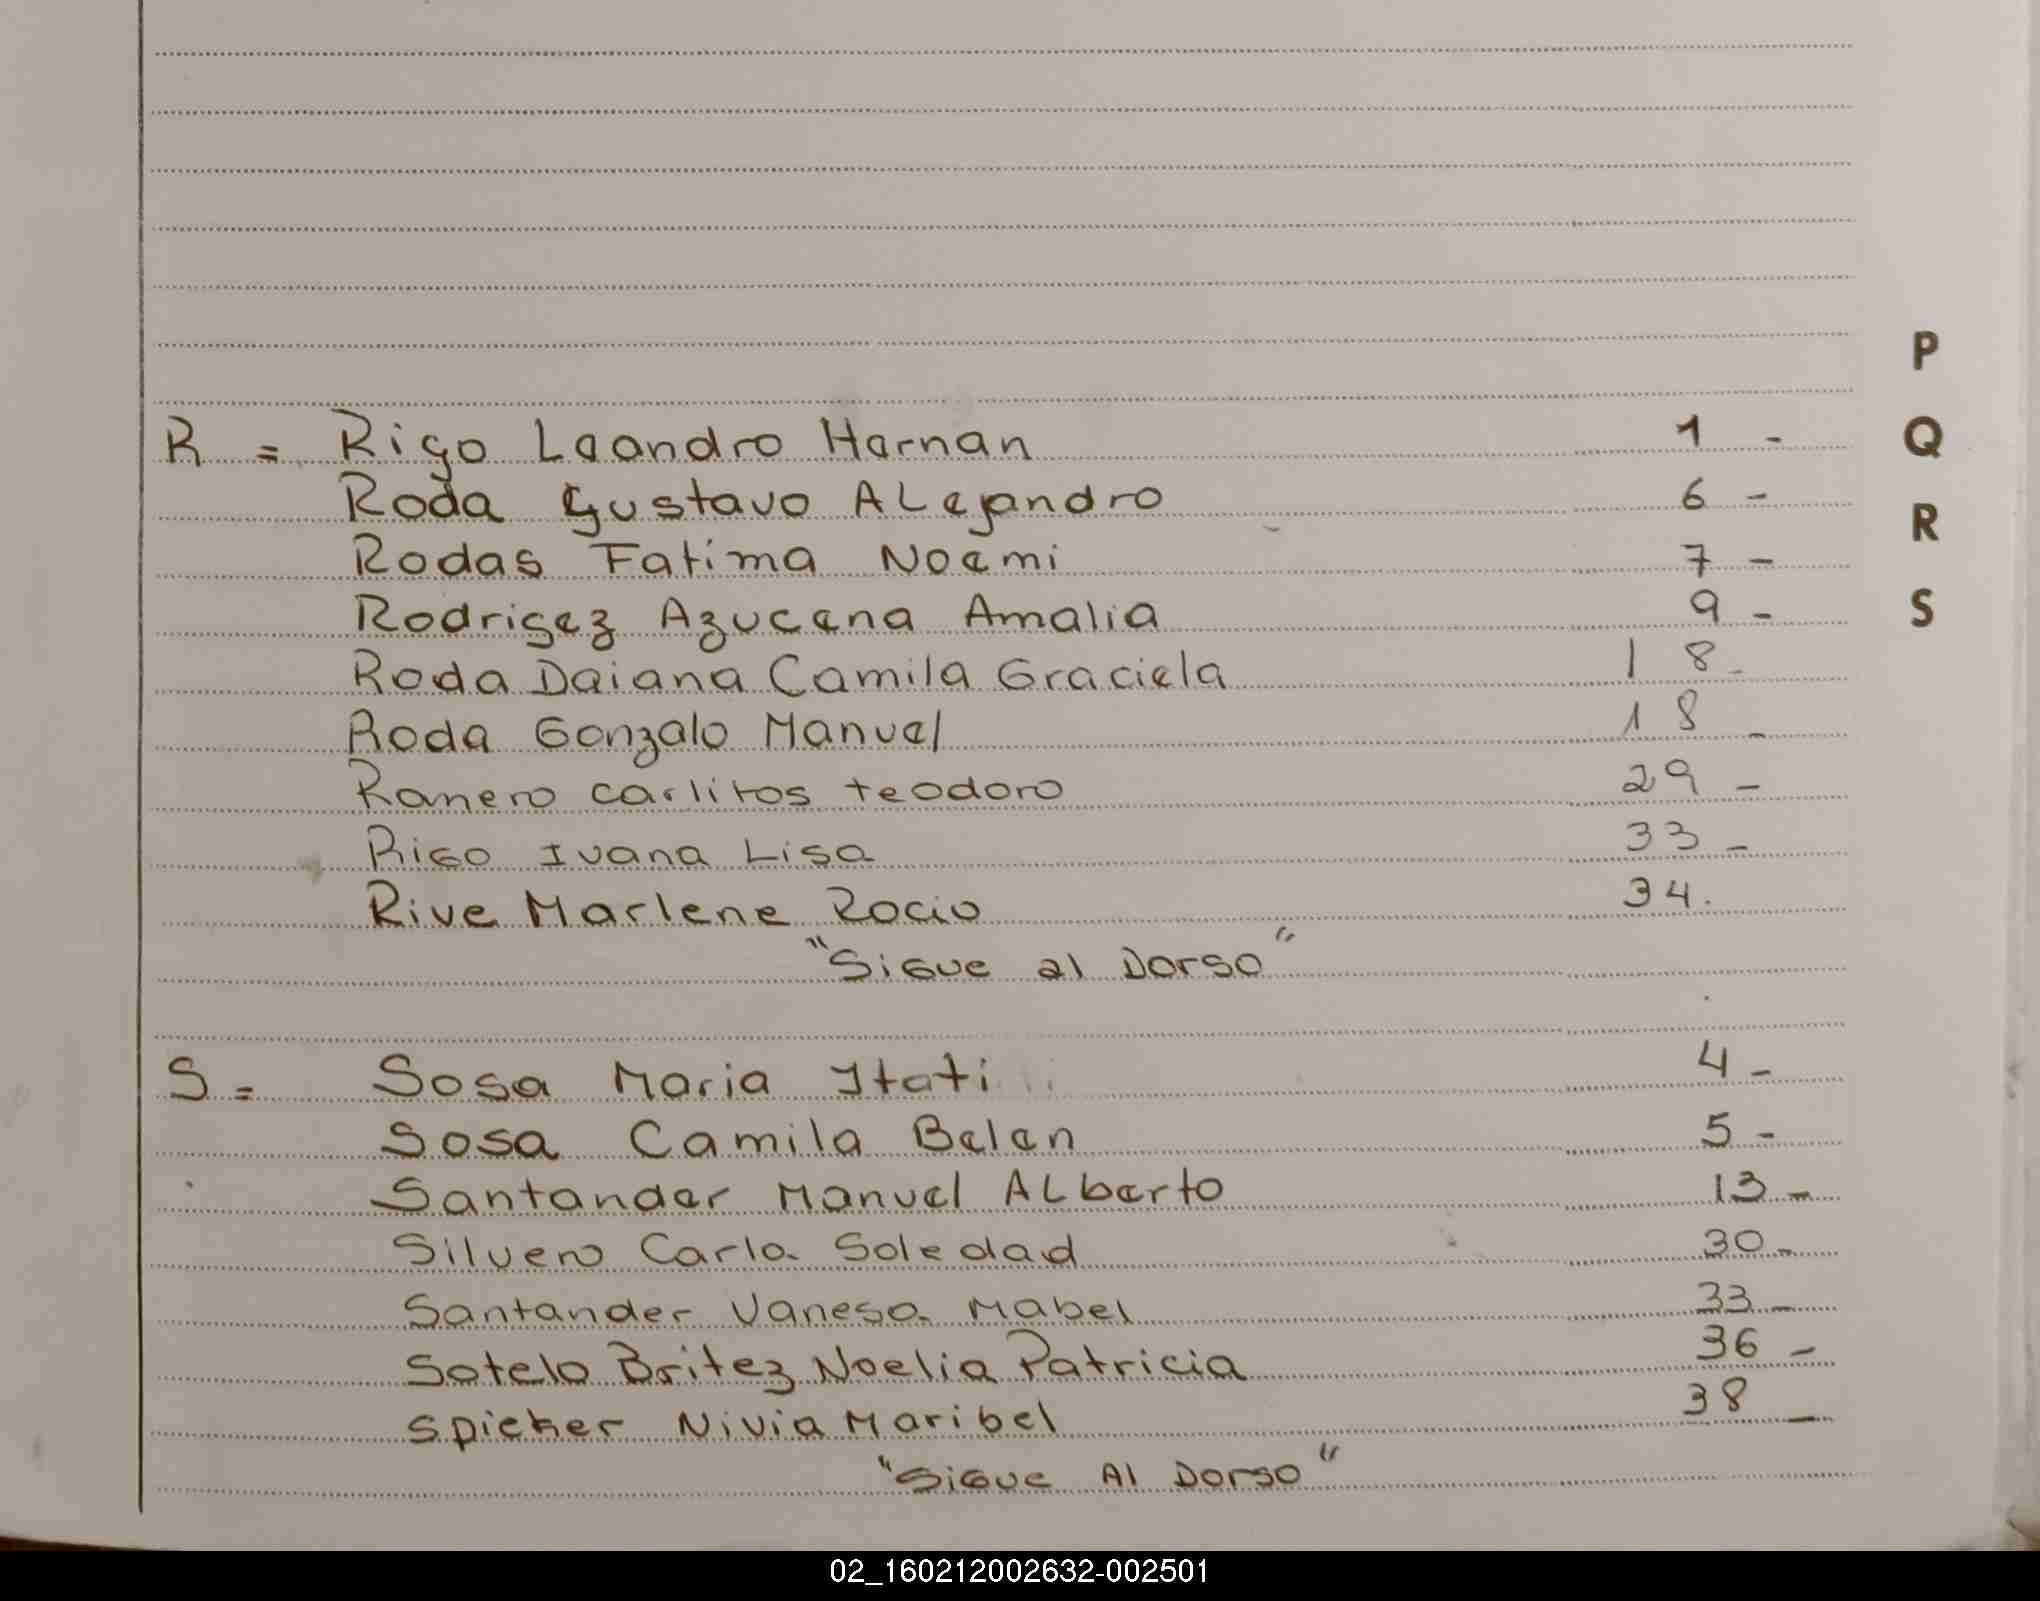 P
Q
R
S
R = Rigo Leandro Hernan 1 -
Roda Gustavo Alejandro 6 -
Rodas Fatima Noemi 7 -
Rodrigez Azucena Amalia 9 -
Roda Daiana Camila Graciela 18 -
Roda Gonzalo Manuel 18 -
Romero carlitos teodoro 29 -
Rigo Ivana Lisa 33 -
Rive Marlene Rocio 34.
"Sigue al Dorso"
S = Sosa Maria Itati 4 -
Sosa Camila Belen 5 -
Santander Manuel Alberto 13 -
Silvero Carla Soledad 30 -
Santander Vanesa Mabel 33 -
Sotelo Britez Noelia Patricia 36 -
Spieker Nivia Maribel 38 -
"Sigue Al Dorso"
02_160212002632-002501